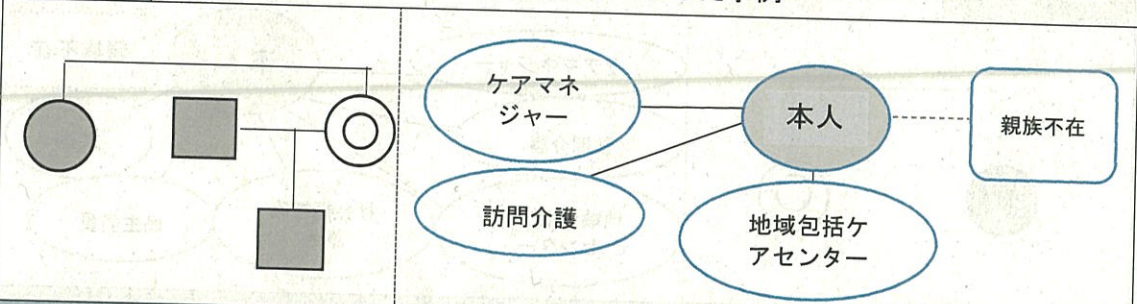 ケアマネ
ジャー
本人
親族不在
訪問介護
地域包括ケ
アセンター